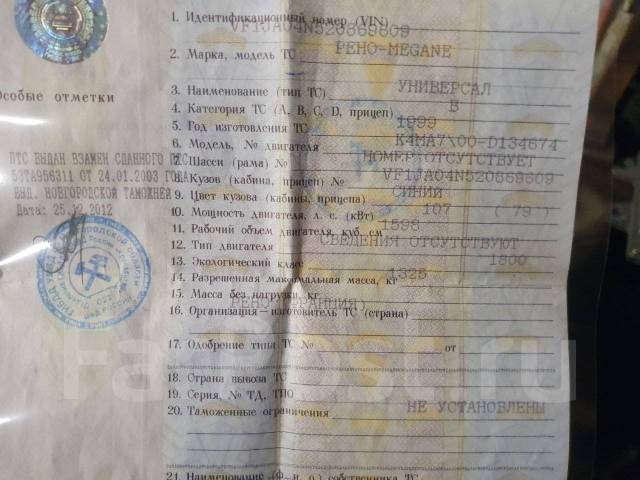 Особые отметки
ПТС ВЫДАН ВЗАМЕН СДАННОГО ПТС
53ТА956311 ОТ 24.01.2003 ГОДА
ВЫД. НОВГОРОДСКОЙ ТАМОЖНЕЙ
Дата: 25.12.2012
1. Идентификационный номер (VIN) VF1JA04N520869609
2. Марка, модель ТС РЕНО-MEGANE
3. Наименование (тип ТС) УНИВЕРСАЛ
4. Категория ТС (А, В, С, D, прицеп) В
5. Год изготовления ТС 1999
6. Модель, № двигателя K4MA7\00-D134674
7. Шасси (рама) № НОМЕР ОТСУТСТВУЕТ
8. Кузов (кабина, прицеп) № VF1JA04N520869609
9. Цвет кузова (кабины, прицепа) СИНИЙ
10. Мощность двигателя, л. с. (кВт) 107 ( 79 )
11. Рабочий объем двигателя, куб. см 1598
12. Тип двигателя СВЕДЕНИЯ ОТСУТСТВУЮТ
13. Экологический класс
14. Разрешенная максимальная масса, кг 1800
15. Масса без нагрузки, кг 1325
16. Организация — изготовитель ТС (страна) РЕНО (ФРАНЦИЯ)
17. Одобрение типа ТС № от
18. Страна вывоза ТС
19. Серия, № ТД, ТПО
20. Таможенные ограничения НЕ УСТАНОВЛЕНЫ
21. Наименование (ф. и. о.) собственника ТС